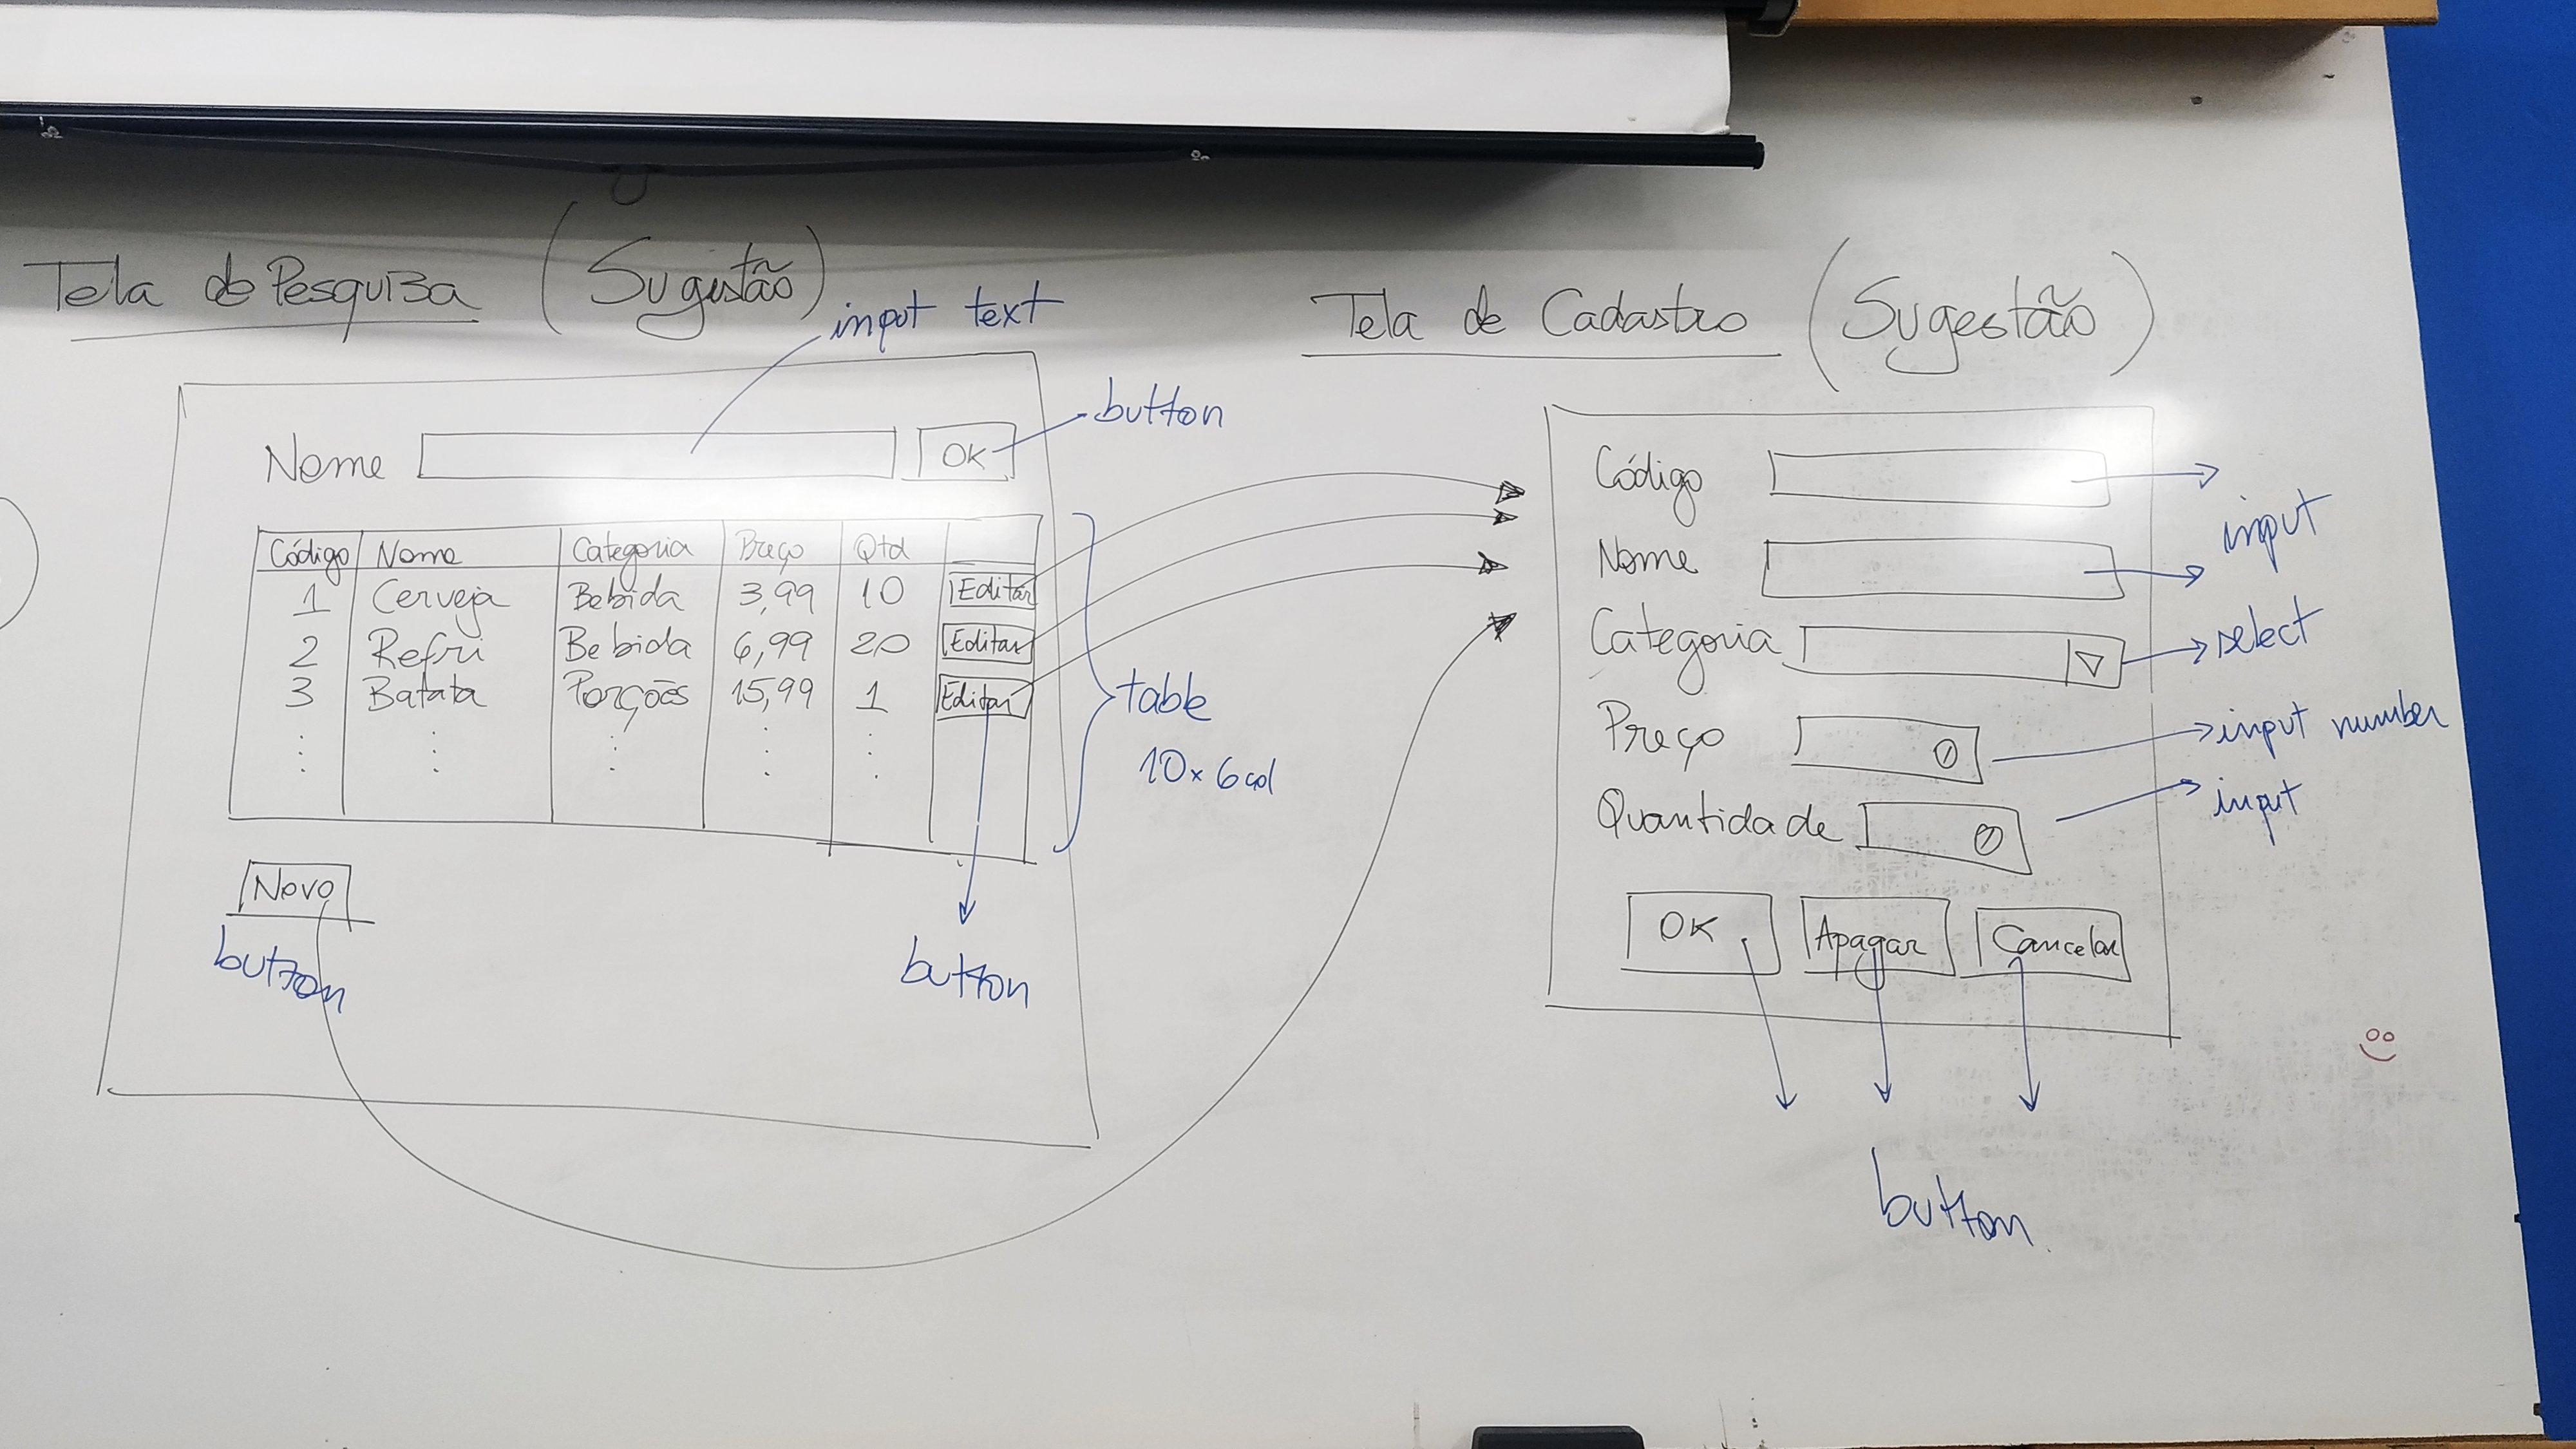 Tela de Pesquisa (Sugestão)
input text
Nome
OK
button
Código Nome Categoria Preço Qtd
1 Cerveja Bebida 3,99 10 Editar
2 Refri Bebida 6,99 20 Editar
3 Batata Porções 15,99 1 Editar
table
10 x 6 col
Novo
button
button
Tela de Cadastro (Sugestão)
Código
Nome
input
Categoria
select
Preço
input number
Quantidade
input
OK Apagar Cancelar
button